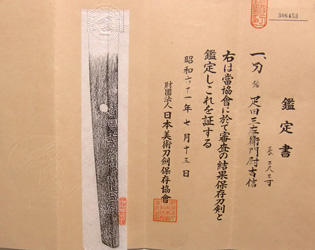 306453
鑑定書
一、刀 銘 疋田三左衛門尉吉信
長 二尺三寸
右は當協會に於て審査の結果保存刀剣と
鑑定しこれを証する
昭和六十一年七月十三日
財團法人 日本美術刀剣保存協會